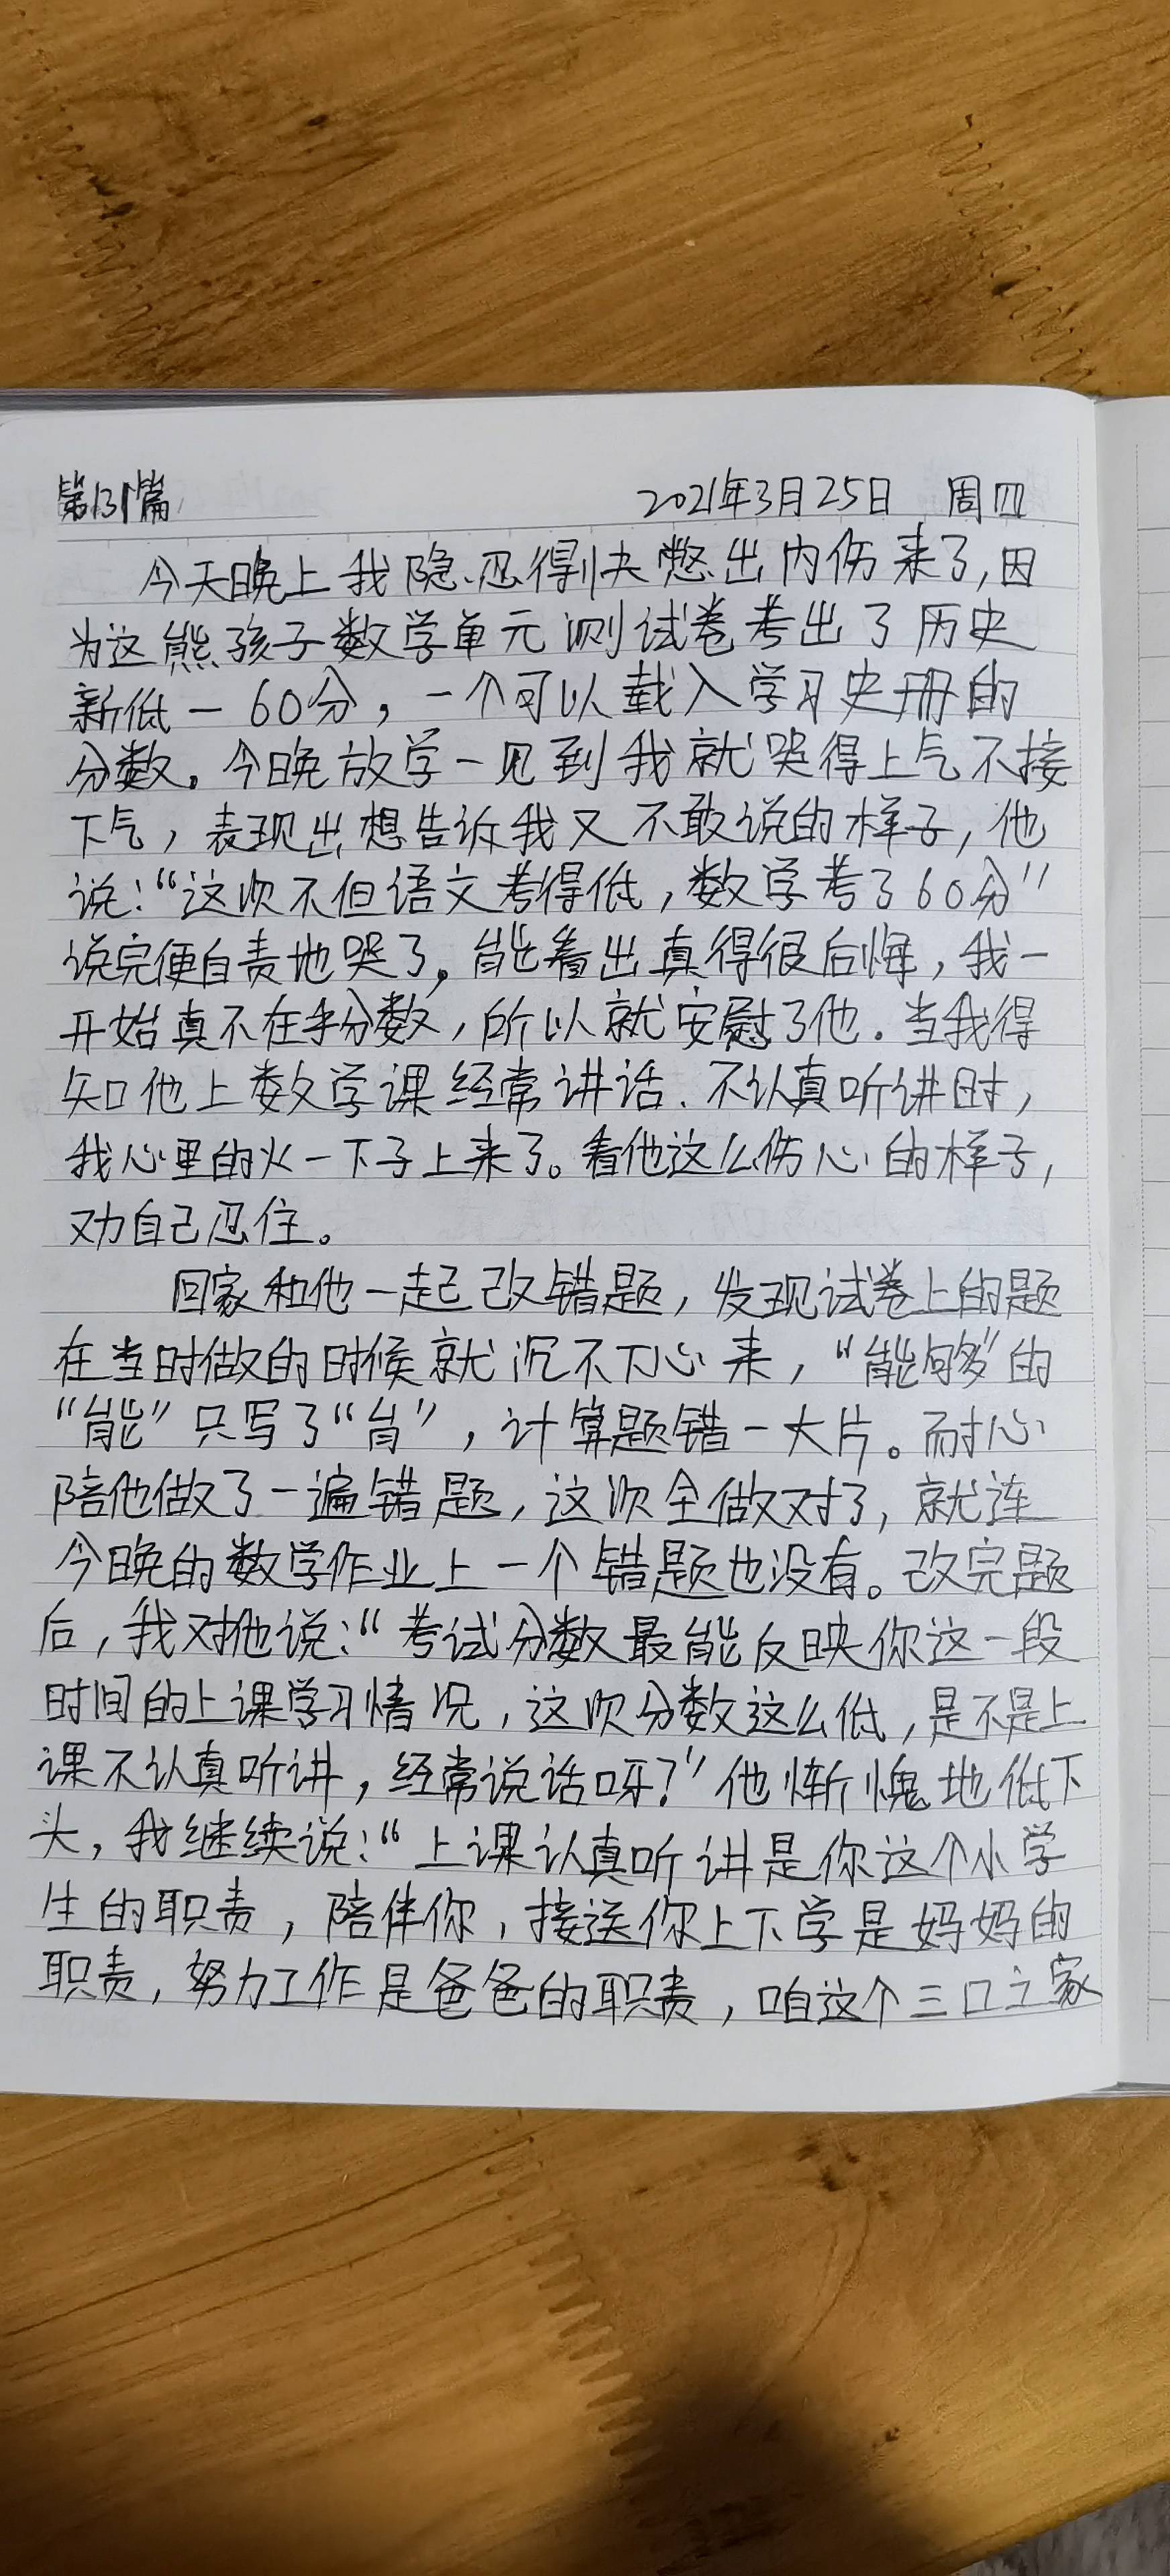 第131篇
2021年3月25日 周四
今天晚上我隐忍得快憋出内伤来了,因
为这熊孩子数学单元测试卷考出了历史
新低—60分,一个可以载入学习史册的
分数。今晚放学一见到我就哭得上气不接
下气,表现出想告诉我又不敢说的样子,他
说:“这次不但语文考得低,数学考了60分”
说完便自责地哭了。能看出真得很后悔,我一
开始真不在乎分数,所以就安慰了他.当我得
知他上数学课经常讲话、不认真听讲时,
我心里的火一下子上来了。看他这么伤心的样子,
劝自己忍住。
回家和他一起改错题,发现试卷上的题
在当时做的时候就沉不下心来,“能够”的
“能”只写了“䏍”,计算题错一大片。耐心
陪他做了一遍错题,这次全做对了,就连
今晚的数学作业上一个错题也没有。改完题
后,我对他说:“考试分数最能反映你这一段
时间的上课学习情况,这次分数这么低,是不是上
课不认真听讲,经常说话呀?”他惭愧地低下
头,我继续说:“上课认真听讲是你这个小学
生的职责,陪伴你,接送你上下学是妈妈的
职责,努力工作是爸爸的职责,咱这个三口之家